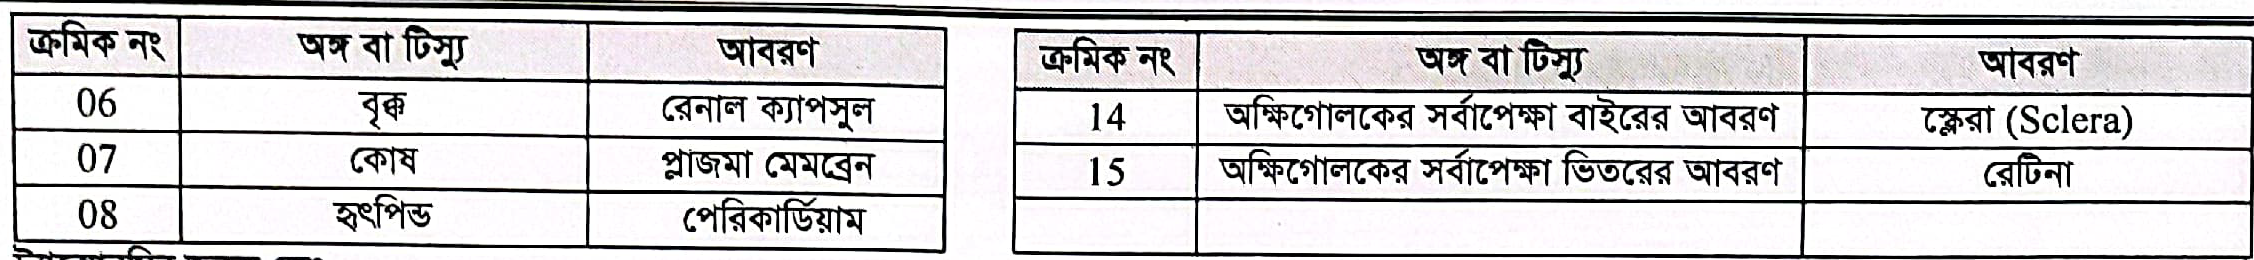 ক্রমিক নং অঙ্গ বা টিস্যু আবরণ
06 বৃক্ক রেনাল ক্যাপসুল
07 কোষ প্লাজমা মেমব্রেন
08 হৃৎপিন্ড পেরিকার্ডিয়াম
ক্রমিক নং অঙ্গ বা টিস্যু আবরণ
14 অক্ষিগোলকের সর্বাপেক্ষা বাইরের আবরণ স্ক্লেরা (Sclera)
15 অক্ষিগোলকের সর্বাপেক্ষা ভিতরের আবরণ রেটিনা